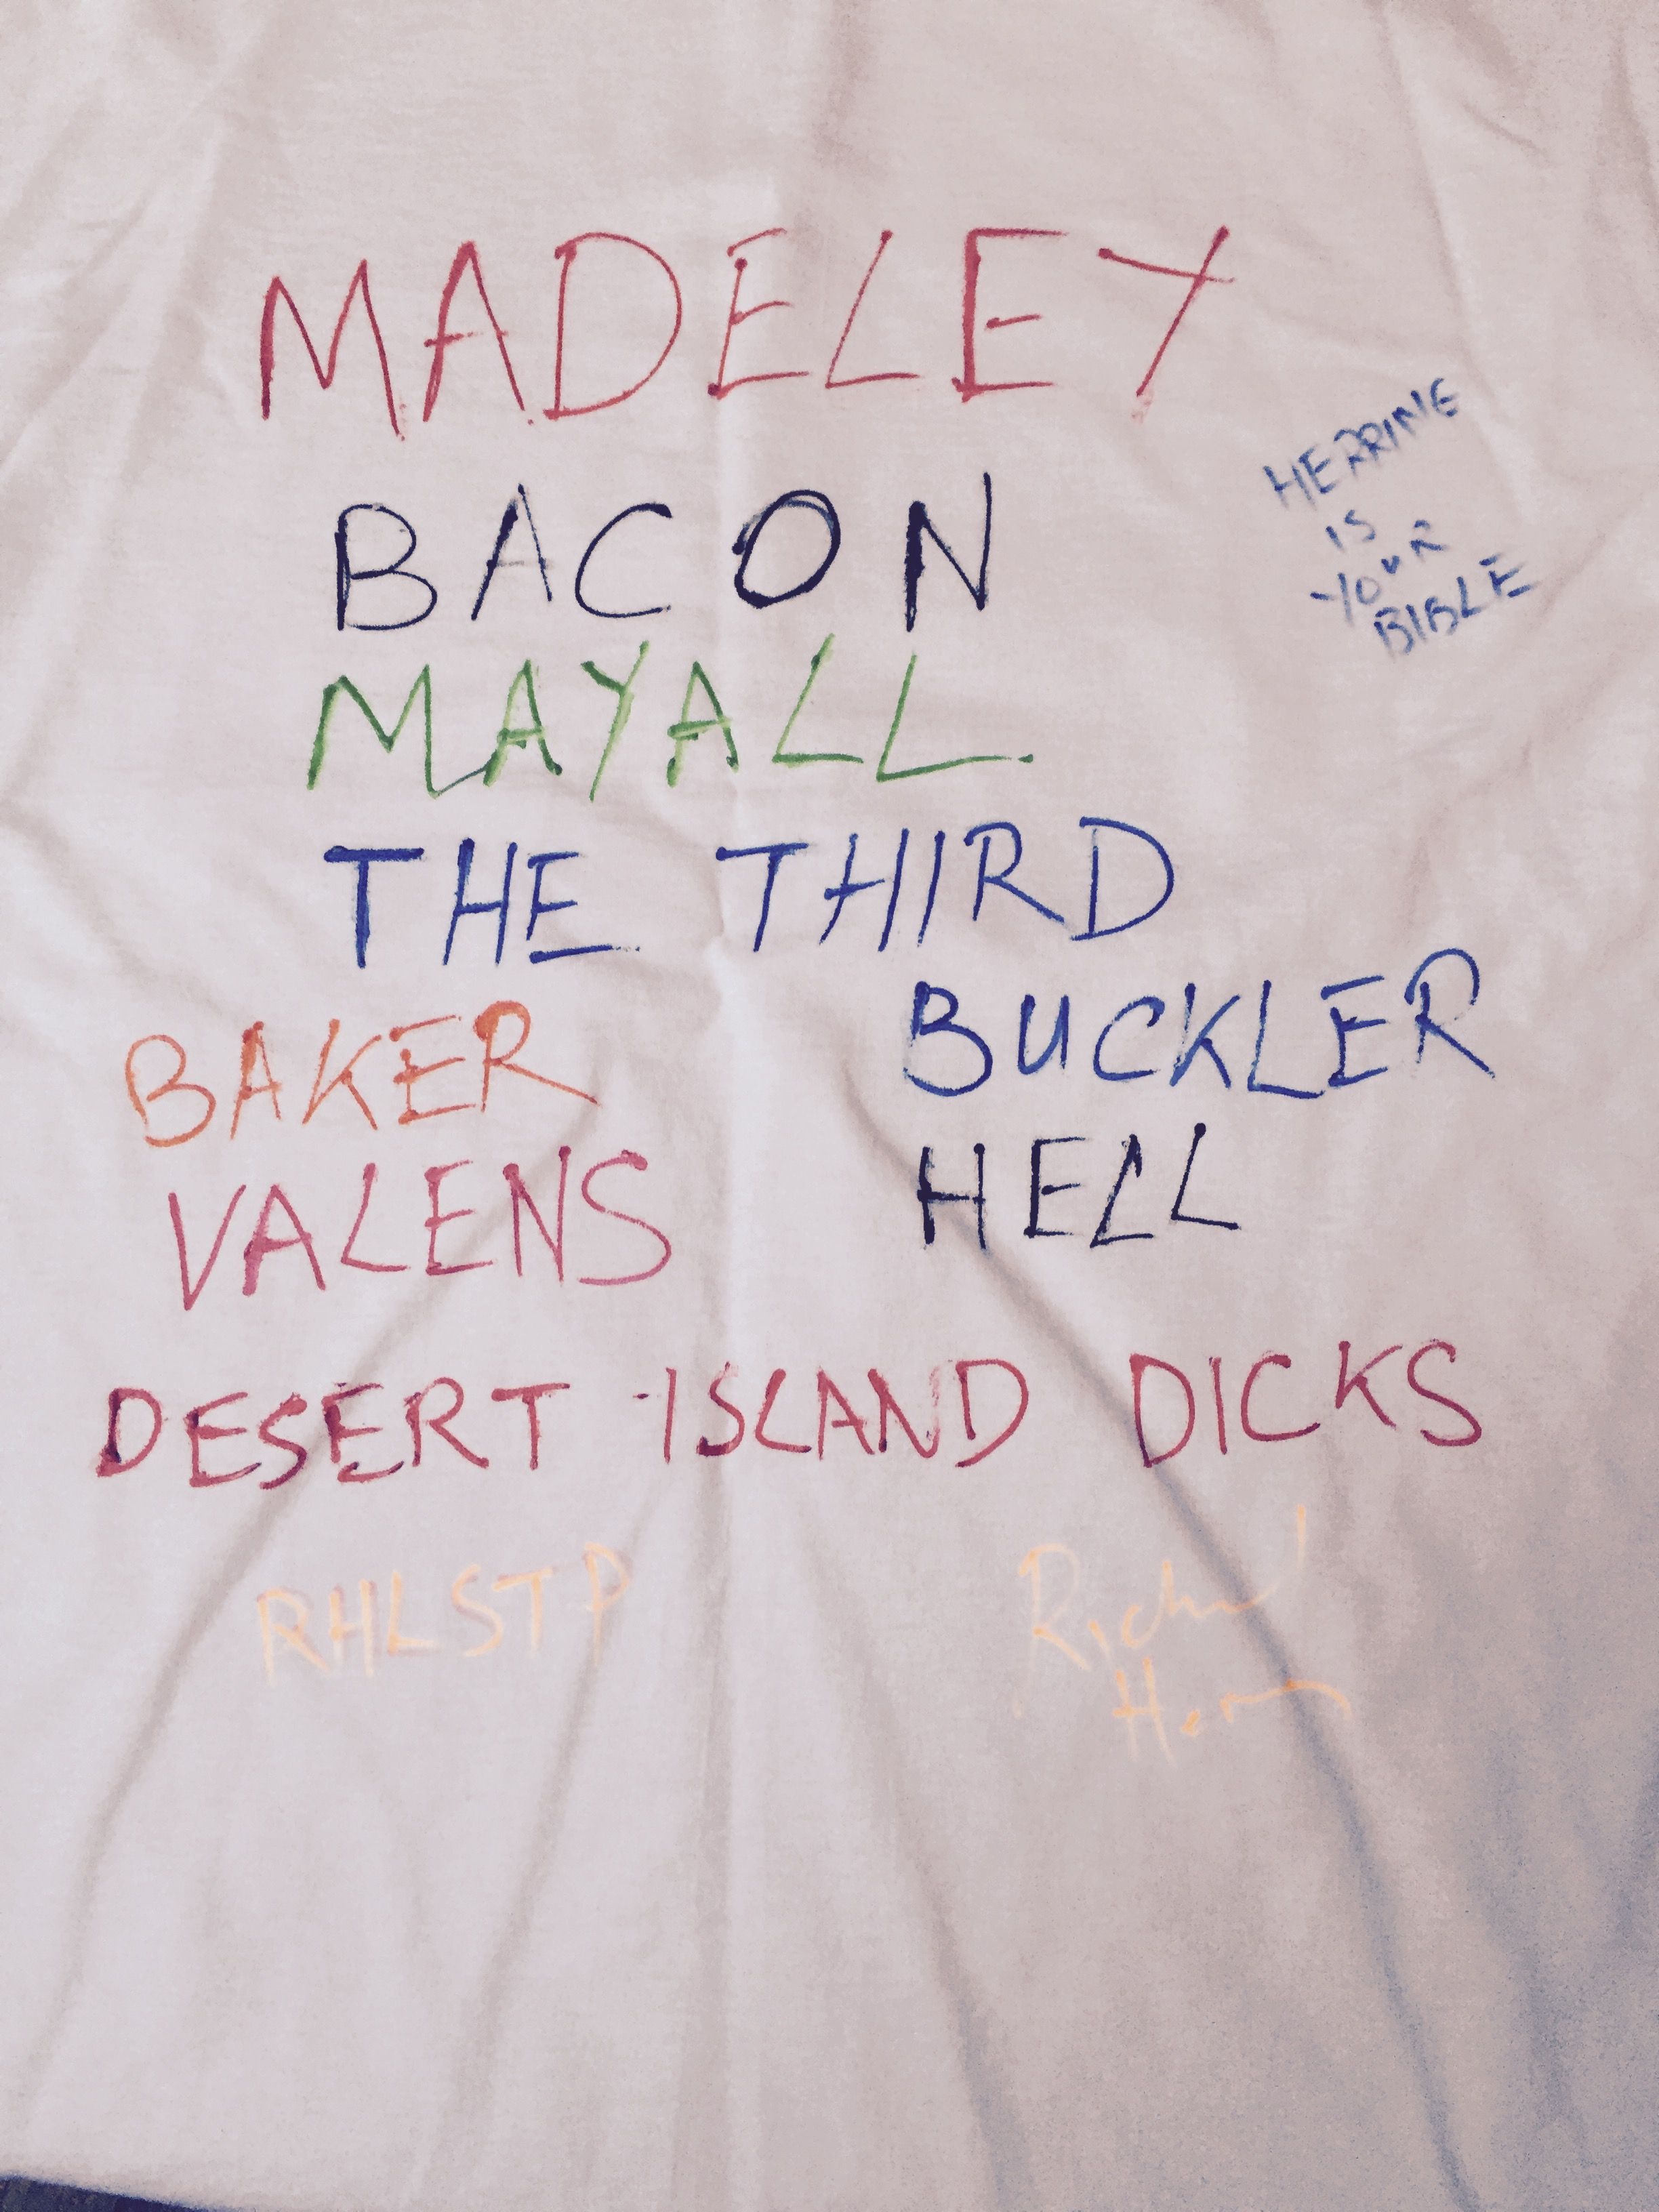 MADELEY
BACON
HERRING
IS
YOUR
BIBLE
MAYALL
THE THIRD
BAKER
BUCKLER
VALENS
HELL
DESERT ISLAND DICKS
RHLSTP
Richard
Herring